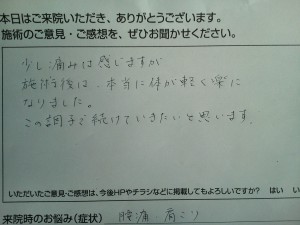 本日はご来院いただき、ありがとうございます。
施術のご意見・ご感想を、ぜひお聞かせください。
少し痛みは感じますが
施術後は、本当に体が軽く楽に
なりました。
この調子で続けていきたいと思います。
いただいたご意見・ご感想は、今後HPやチラシなどに掲載してもよろしいですか？ はい い
来院時のお悩み(症状) 腰痛・肩こり